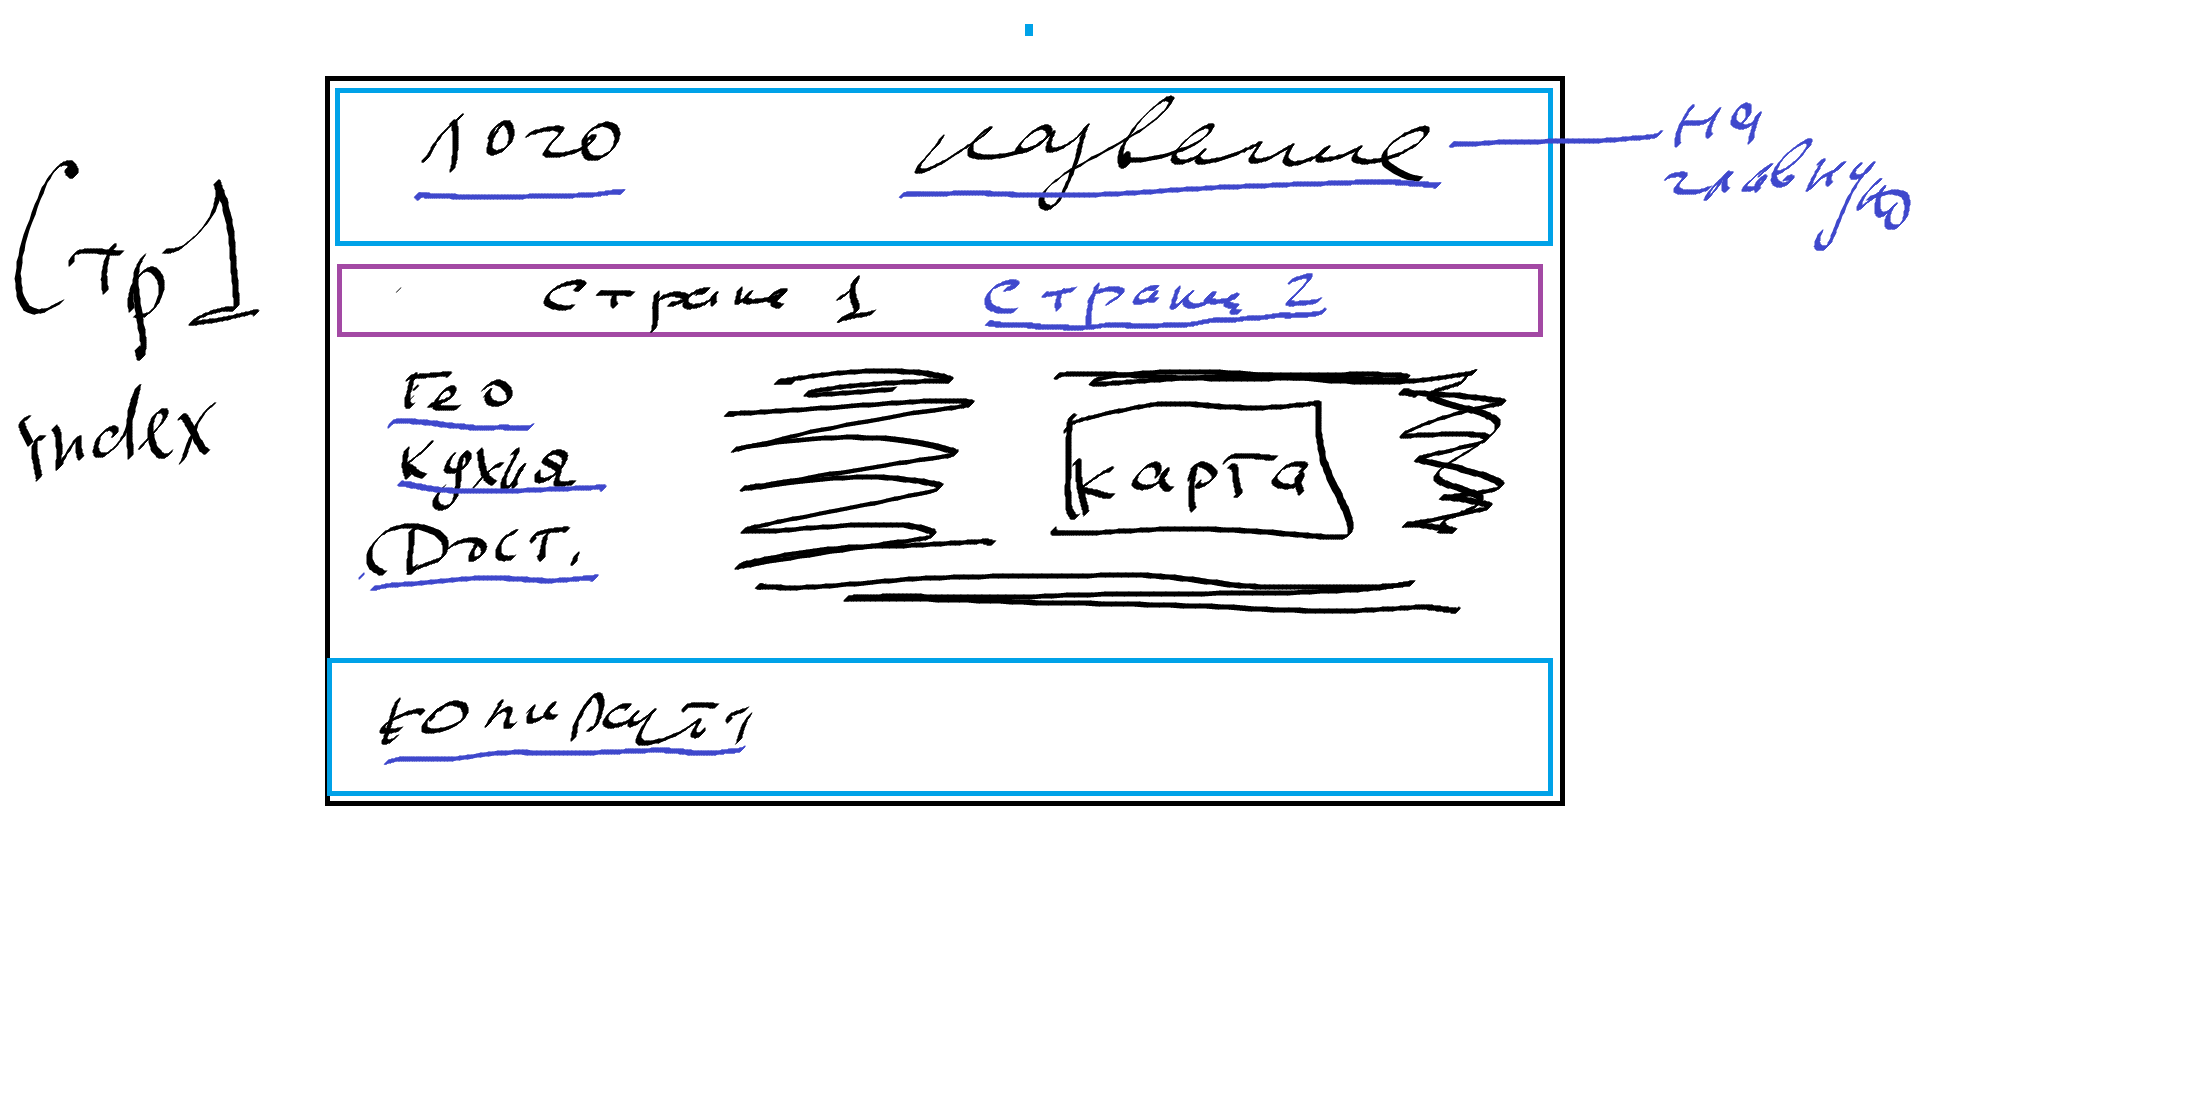 Стр 1
index
лого название
на
главную
Стране 1 Страниц 2
Гео
Кухня
Дост.
карта
копирайт